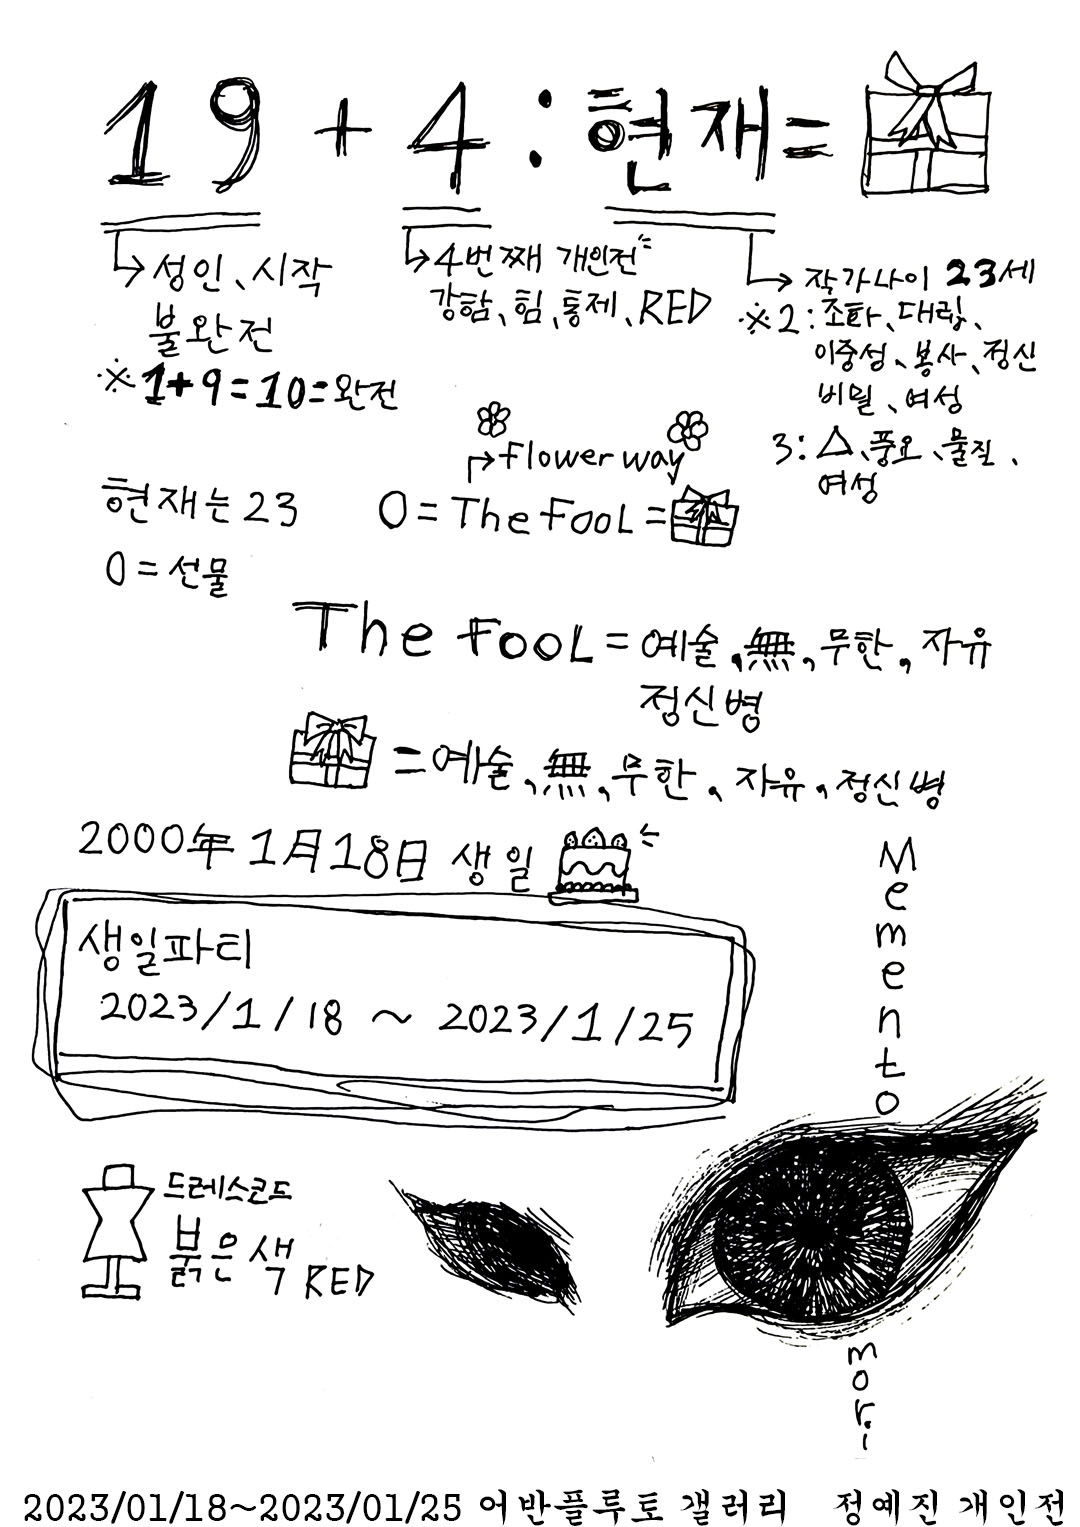 19 + 4 : 현재 =
성인、시작
불완전
※ 1+9=10=완전
4번째 개인전
강함、힘、통제、RED
작가나이 23세
※2: 조화、대립、
이중성、봉사、정신
비밀、여성
3: △、풍요、물질、
여성
flower way
현재는 23
0 = The FooL =
0 = 선물
The FooL = 예술, 無, 무한, 자유
정신병
= 예술, 無, 무한, 자유, 정신병
2000年 1月18日 생일
생일파티
2023/1/18 ~ 2023/1/25
Memento
드레스코드
붉은색 RED
mori
2023/01/18~2023/01/25 어반플루토 갤러리 정예진 개인전